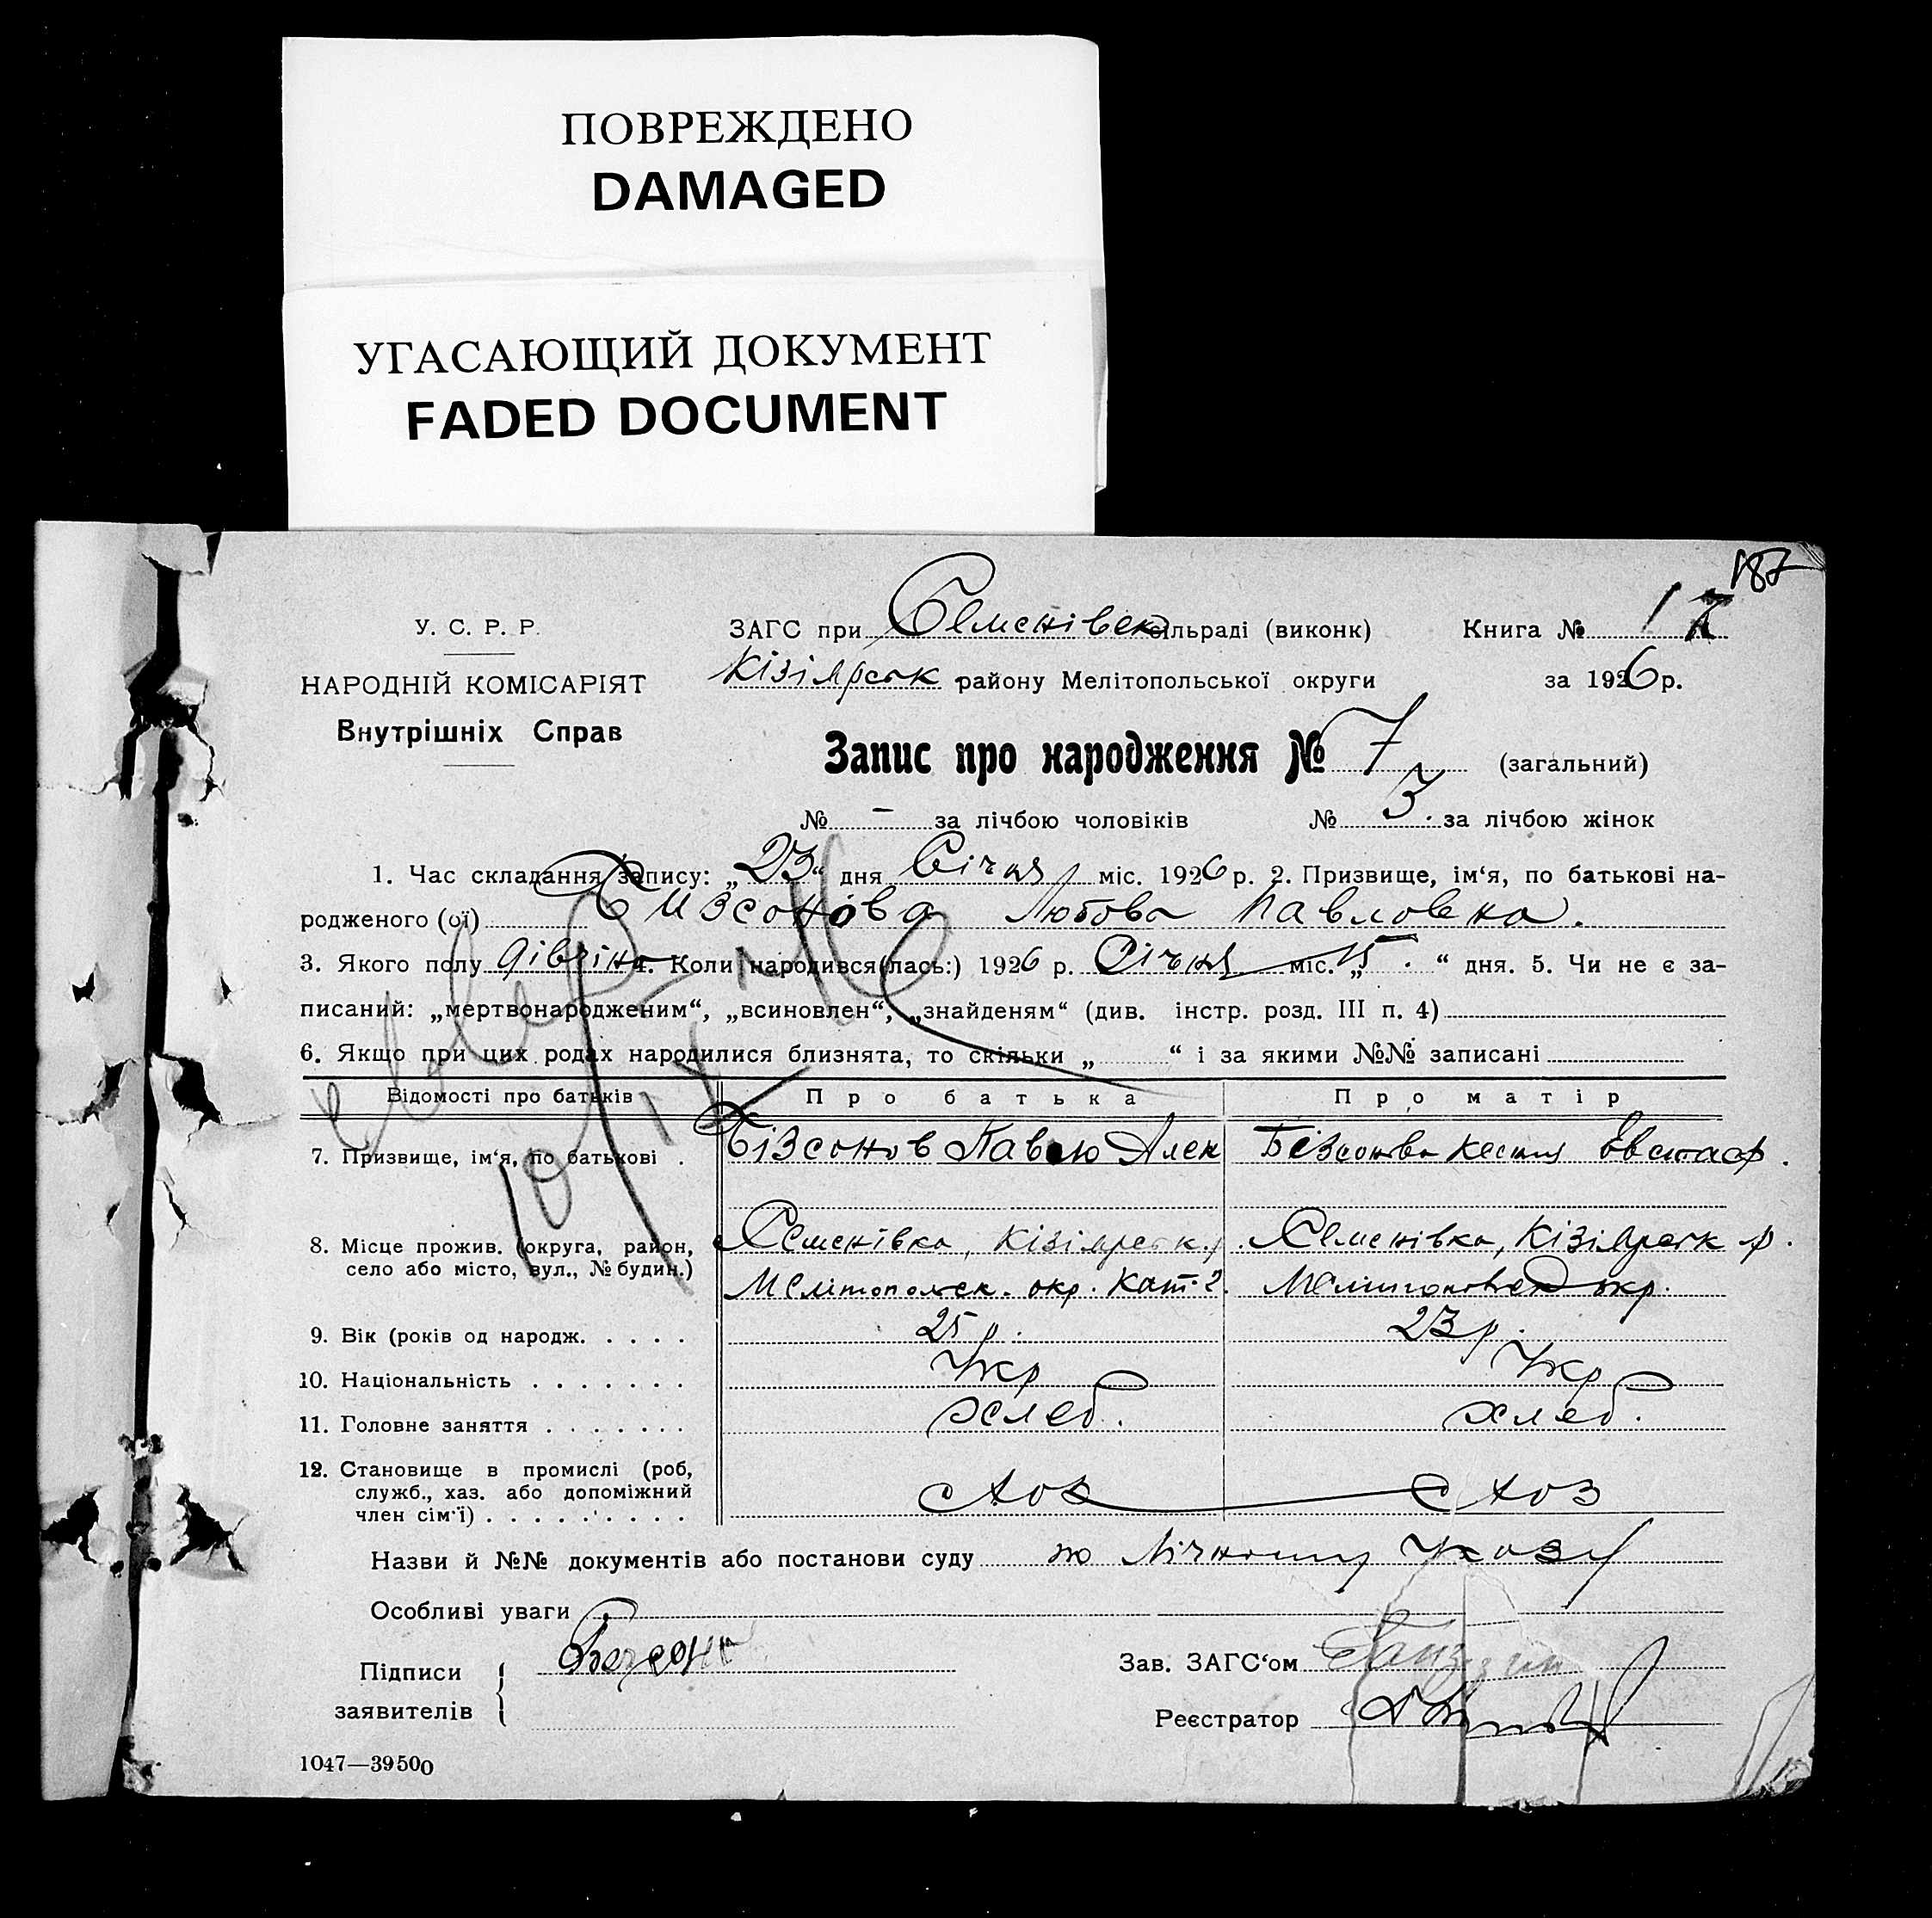 ПОВРЕЖДЕНО
DAMAGED
УГАСАЮЩИЙ ДОКУМЕНТ
FADED DOCUMENT
187
У. С. Р. Р.
НАРОДНІЙ КОМІСАРІЯТ
Внутрішніх Справ
ЗАГС при Семенівск сільраді (виконк) Книга № 1
Кізіярськ району Мелітопольської округи за 1926 р.
Запис про народження № 7 (загальний)
№ – за лічбою чоловіків № 3. за лічбою жінок
1. Час складання запису: „23“ дня Січня міс. 1926 р. 2. Призвище, ім‘я, по батькові на-
родженого (ої) Бизсонова Любова Павловна.
3. Якого полу дівчина 4. Коли народився(лась:) 1926 р. Січня міс. „15.“ дня. 5. Чи не є за-
писаний: „мертвонародженим“, „всиновлен“, „знайденям“ (див. інстр. розд. III п. 4)
6. Якщо при цих родах народилися близнята, то скільки „ “ і за якими №№ записані
Відомості про батьків Про батька Про матір
7. Призвище, ім‘я, по батькові . Бізсонов Павло Алек Бізсонова Евстаф.
8. Місце прожив. (округа, район, Семенівка, Кізіярськ. р. Семенівка, Кізіярськ р.
село або місто, вул., № будин.) Мелітопольск. окр. Кат. 2. Мелітопольск окр.
9. Вік (років од народж. . . . . 25 р. 23 р.
10. Національність . . . . . . . Укр Укр
11. Головне заняття . . . . . . . хлеб. хлеб.
12. Становище в промислі (роб,
служб., хаз. або допоміжний хоз хоз
член сім‘ї) . . . . . . . . .
Назви й №№ документів або постанови суду по Лічному указу
Особливі уваги
Підписи
заявителів
Зав. ЗАГС‘ом
Реєстратор
1047—39500